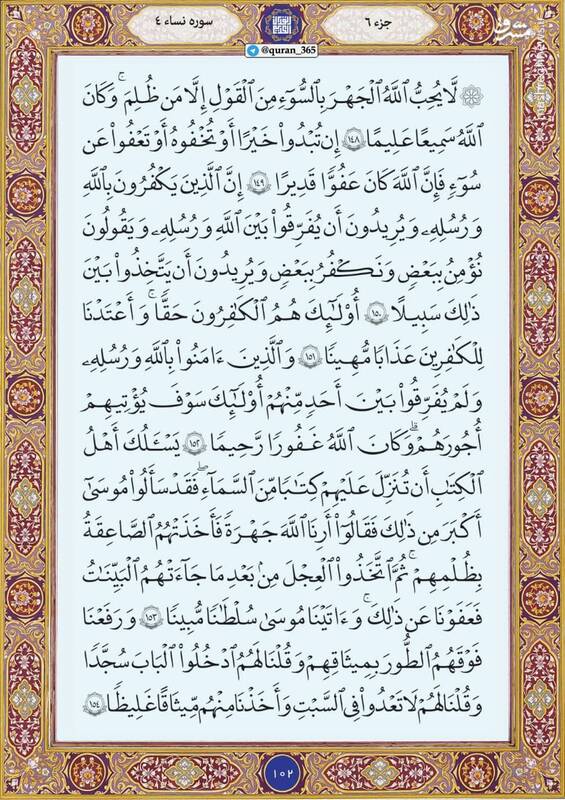 جزء ٦
سوره نساء ٤
@quran_365
مشرق
۞ لَّا يُحِبُّ ٱللَّهُ ٱلْجَهْرَ بِٱلسُّوٓءِ مِنَ ٱلْقَوْلِ إِلَّا مَن ظُلِمَ ۚ وَكَانَ
ٱللَّهُ سَمِيعًا عَلِيمًا ١٤٨ إِن تُبْدُوا۟ خَيْرًا أَوْ تُخْفُوهُ أَوْ تَعْفُوا۟ عَن
سُوٓءٍ فَإِنَّ ٱللَّهَ كَانَ عَفُوًّا قَدِيرًا ١٤٩ إِنَّ ٱلَّذِينَ يَكْفُرُونَ بِٱللَّهِ
وَرُسُلِهِۦ وَيُرِيدُونَ أَن يُفَرِّقُوا۟ بَيْنَ ٱللَّهِ وَرُسُلِهِۦ وَيَقُولُونَ
نُؤْمِنُ بِبَعْضٍ وَنَكْفُرُ بِبَعْضٍ وَيُرِيدُونَ أَن يَتَّخِذُوا۟ بَيْنَ
ذَٰلِكَ سَبِيلًا ١٥٠ أُو۟لَٰٓئِكَ هُمُ ٱلْكَٰفِرُونَ حَقًّا ۚ وَأَعْتَدْنَا
لِلْكَٰفِرِينَ عَذَابًا مُّهِينًا ١٥١ وَٱلَّذِينَ ءَامَنُوا۟ بِٱللَّهِ وَرُسُلِهِۦ
وَلَمْ يُفَرِّقُوا۟ بَيْنَ أَحَدٍ مِّنْهُمْ أُو۟لَٰٓئِكَ سَوْفَ يُؤْتِيهِمْ
أُجُورَهُمْ ۗ وَكَانَ ٱللَّهُ غَفُورًا رَّحِيمًا ١٥٢ يَسْـَٔلُكَ أَهْلُ
ٱلْكِتَٰبِ أَن تُنَزِّلَ عَلَيْهِمْ كِتَٰبًا مِّنَ ٱلسَّمَآءِ ۚ فَقَدْ سَأَلُوا۟ مُوسَىٰٓ
أَكْبَرَ مِن ذَٰلِكَ فَقَالُوٓا۟ أَرِنَا ٱللَّهَ جَهْرَةً فَأَخَذَتْهُمُ ٱلصَّٰعِقَةُ
بِظُلْمِهِمْ ۚ ثُمَّ ٱتَّخَذُوا۟ ٱلْعِجْلَ مِنۢ بَعْدِ مَا جَآءَتْهُمُ ٱلْبَيِّنَٰتُ
فَعَفَوْنَا عَن ذَٰلِكَ ۚ وَءَاتَيْنَا مُوسَىٰ سُلْطَٰنًا مُّبِينًا ١٥٣ وَرَفَعْنَا
فَوْقَهُمُ ٱلطُّورَ بِمِيثَٰقِهِمْ وَقُلْنَا لَهُمُ ٱدْخُلُوا۟ ٱلْبَابَ سُجَّدًا
وَقُلْنَا لَهُمْ لَا تَعْدُوا۟ فِى ٱلسَّبْتِ وَأَخَذْنَا مِنْهُم مِّيثَٰقًا غَلِيظًا ١٥٤
١٠٢